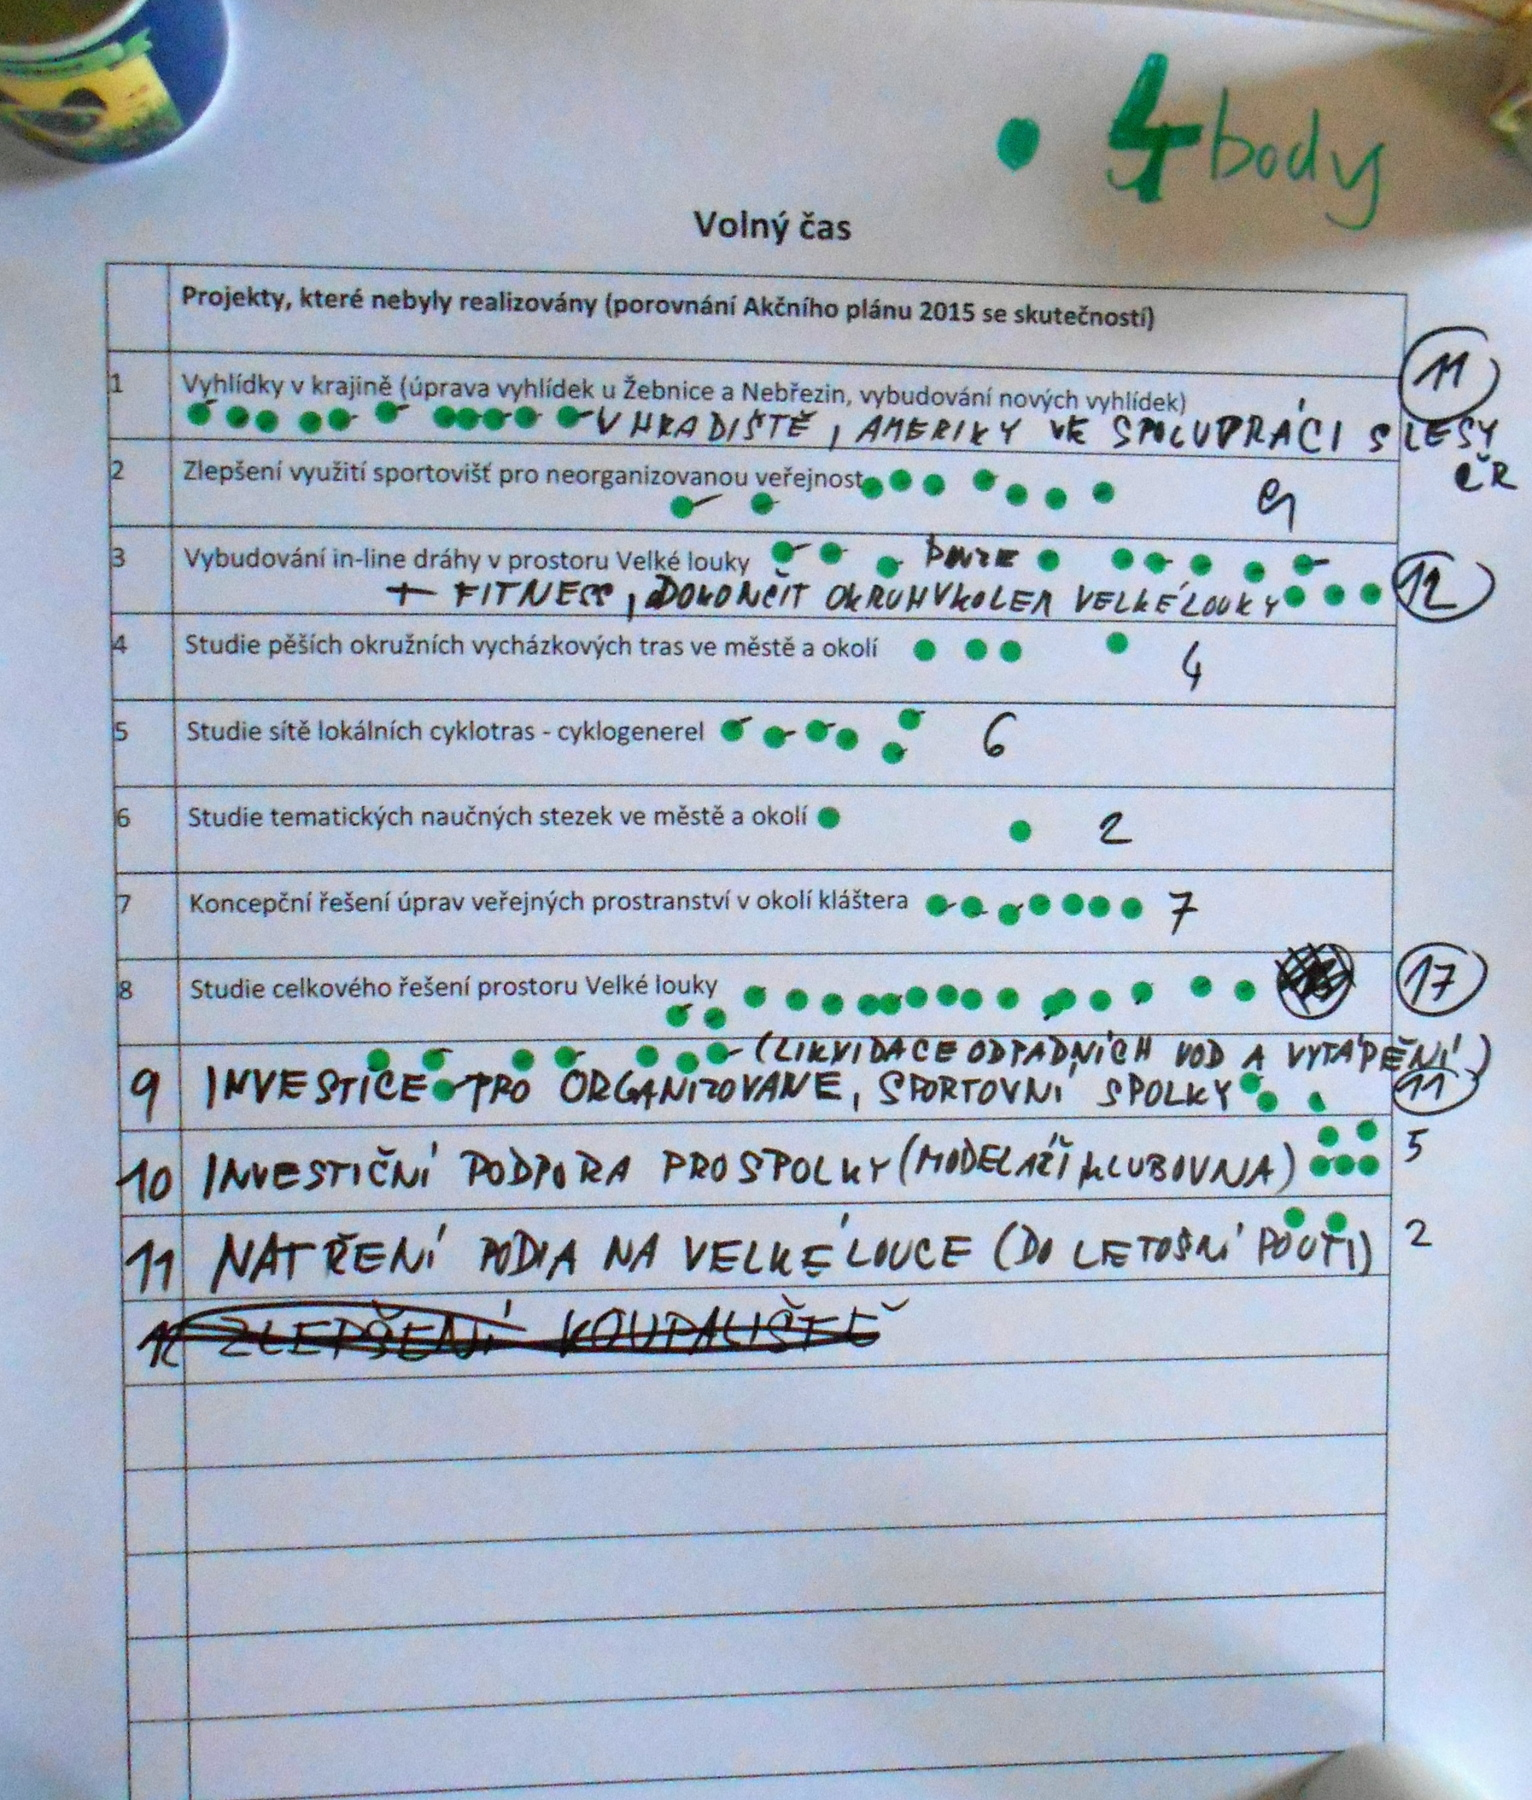 4 body
Volný čas
Projekty, které nebyly realizovány (porovnání Akčního plánu 2015 se skutečností)
11
1 Vyhlídky v krajině (úprava vyhlídek u Žebnice a Nebřezin, vybudování nových vyhlídek)
V HRADIŠTĚ, AMERIKY VE SPOLUPRÁCI S LESY
ČR
2 Zlepšení využití sportovišť pro neorganizovanou veřejnost
9
3 Vybudování in-line dráhy v prostoru Velké louky POUZE
+ FITNESS, DOKONČIT OKRUH VKOLEM VELKÉ LOUKY 12
4 Studie pěších okružních vycházkových tras ve městě a okolí 4
5 Studie sítě lokálních cyklotras - cyklogenerel 6
6 Studie tematických naučných stezek ve městě a okolí 2
7 Koncepční řešení úprav veřejných prostranství v okolí kláštera 7
8 Studie celkového řešení prostoru Velké louky 17
(LIKVIDACE ODPADNÍCH VOD A VYTÁPĚNÍ)
9 INVESTICE PRO ORGANIZOVANÉ, SPORTOVNÍ SPOLKY 11
10 INVESTIČNÍ PODPORA PRO SPOLKY (MODELÁŘI KLUBOVNA) 5
11 NATŘENÍ PODIA NA VELKÉ LOUCE (DO LETOŠNÍ POUTI) 2
12 ZLEPŠENÍ KOUPALIŠTĚ